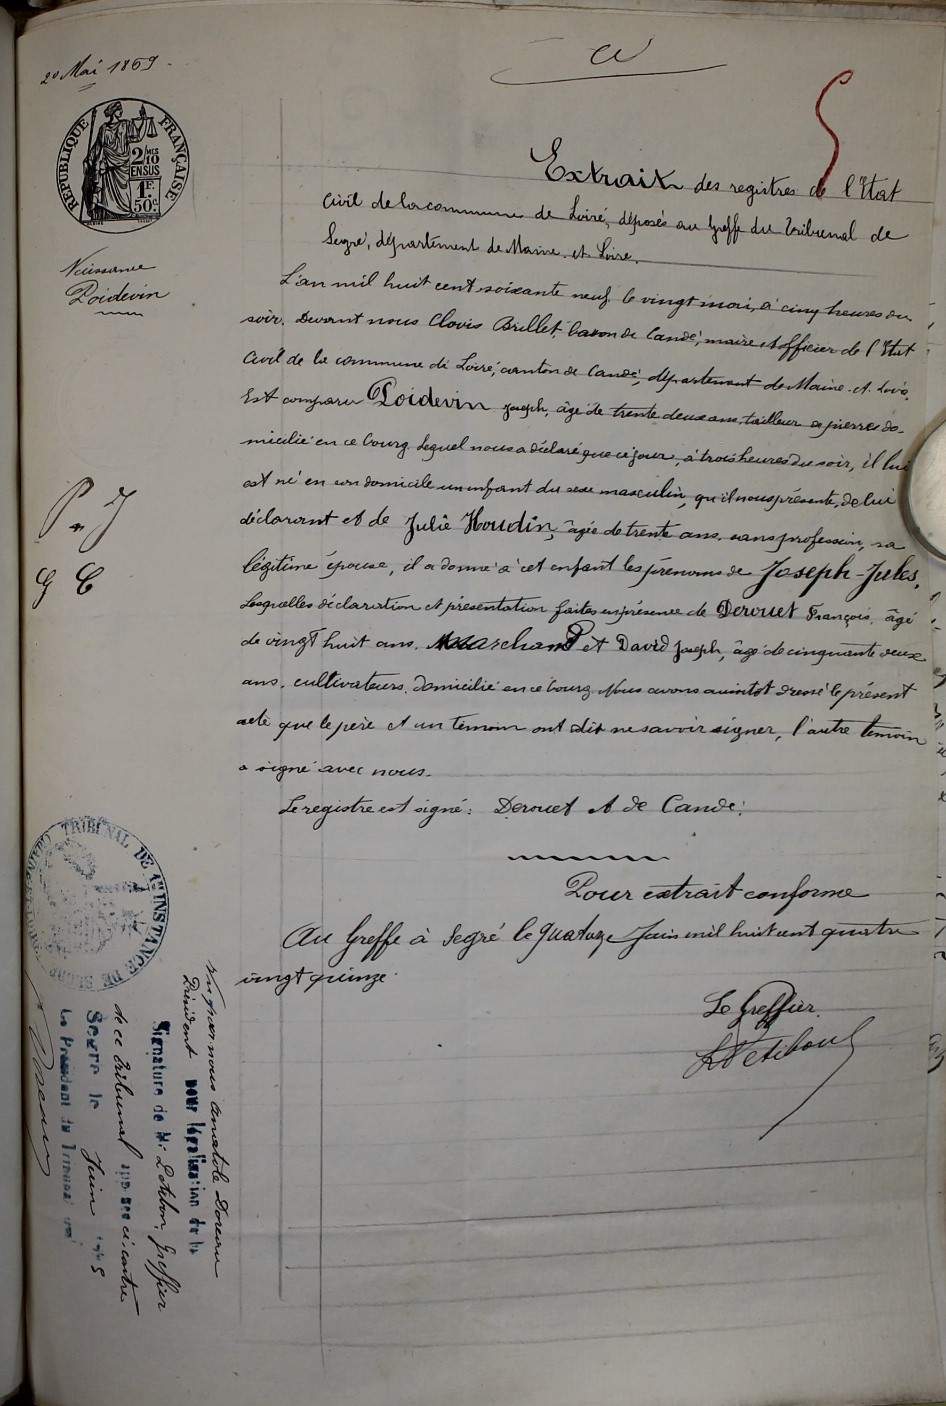 20 Mai 1869.
RÉPUBLIQUE FRANÇAISE
2/MES
10
EN SUS
1F.
50c.
Naissance
Poidevin
5
Extrait des registres de l'Etat
Civil de la commune de Loiré, déposés au Greffe du Tribunal de
Segré, département de Maine-et-Loire.
L'an mil huit cent soixante neuf le vingt mai, à cinq heures du
soir. Devant nous Clovis Brillet, baron de Candé, maire et officier de l'Etat
Civil de la commune de Loiré, canton de Candé, département de Maine-et-Loire,
Est comparu Poidevin Joseph, âgé de trente deux ans, tailleur de pierres do-
micilié en ce bourg. Lequel nous a déclaré que ce jour, à trois heures du soir, il lui
est né en son domicile un enfant du sexe masculin, qu'il nous présente, de lui
déclarant et de Julie Houdin, âgée de trente ans, sans profession, sa
légitime épouse, il a donné à cet enfant les prénoms de Joseph-Jules,
Lesquelles déclaration et présentation faites en présence de Derouet François, âgé
de vingt huit ans, Marchand et David Joseph, âgé de cinquante deux
ans, cultivateurs, domicilié en ce bourg. Nous avons aussitôt dressé le présent
acte que le père et un témoin ont dit ne savoir signer, l'autre témoin
a signé avec nous.
Le registre est signé: Derouet et de Candé.
Pour extrait conforme
Au Greffe à Segré le quatorze Juin mil huit cent quatre
vingt quinze.
Le Greffier.
TRIBUNAL DE 1re INSTANCE DE SEGRÉ
Vu par nous Anatole Doreau
Président pour légalisation de la
Signature de Mr Letibou, Greffier
de ce Tribunal apposée ci-contre
Segré le Juin 1895
Le Président du Tribunal civil